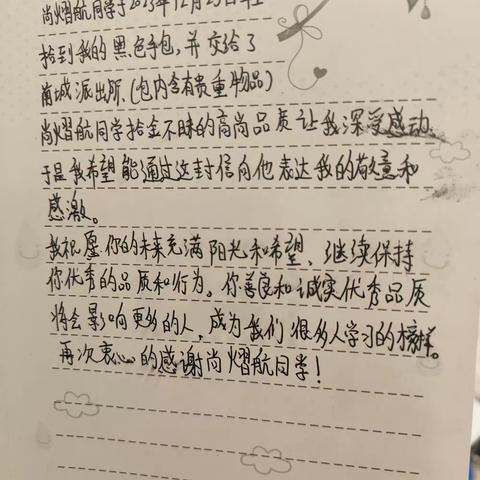 尚熠航同学于2023年12月23日在
拾到我的黑色手包,并交给了
南城派出所.(包内含有贵重物品)
尚熠航同学拾金不昧的高尚品质让我深受感动.
于是我希望能通过这封信向他表达我的敬意和
感激。
我祝愿你的未来充满阳光和希望、继续保持
你优秀的品质和行为。你善良和诚实优秀品质
将会影响更多的人,成为我们很多人学习的榜样。
再次衷心的感谢尚熠航同学!